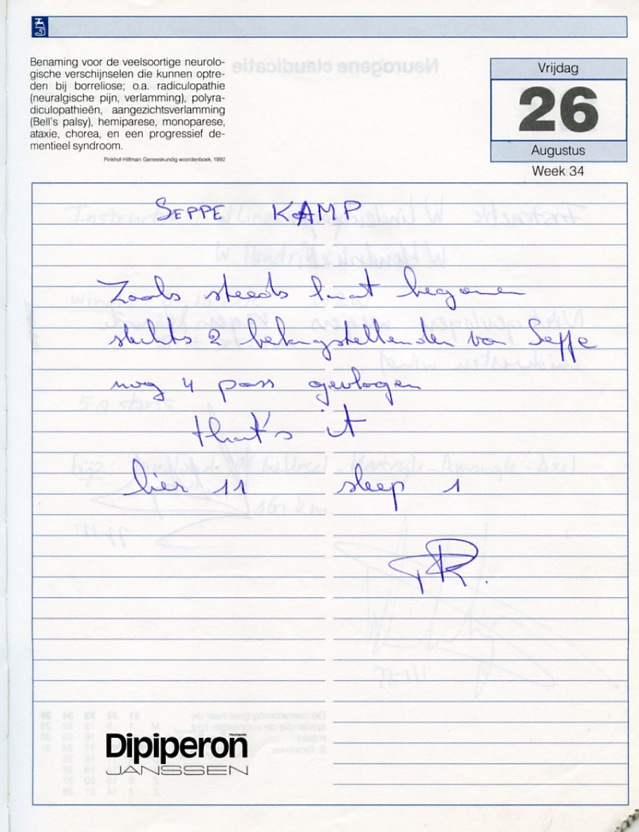 Benaming voor de veelsoortige neurolo-
gische verschijnselen die kunnen optre-
den bij borreliose; o.a. radiculopathie
(neuralgische pijn, verlamming), polyra-
diculopathieën, aangezichtsverlamming
(Bell's palsy), hemiparese, monoparese,
ataxie, chorea, en een progressief de-
mentieel syndroom.
Pinkhof-Hilfman Geneeskundig woordenboek, 1992
Vrijdag
26
Augustus
Week 34
SEPPE KAMP
Zoals steeds laat begonnen
slechts 2 belangstellenden van Seppe
nog 4 pass gevlogen
that's it
lier 11 sleep 1
Dipiperon
JANSSEN